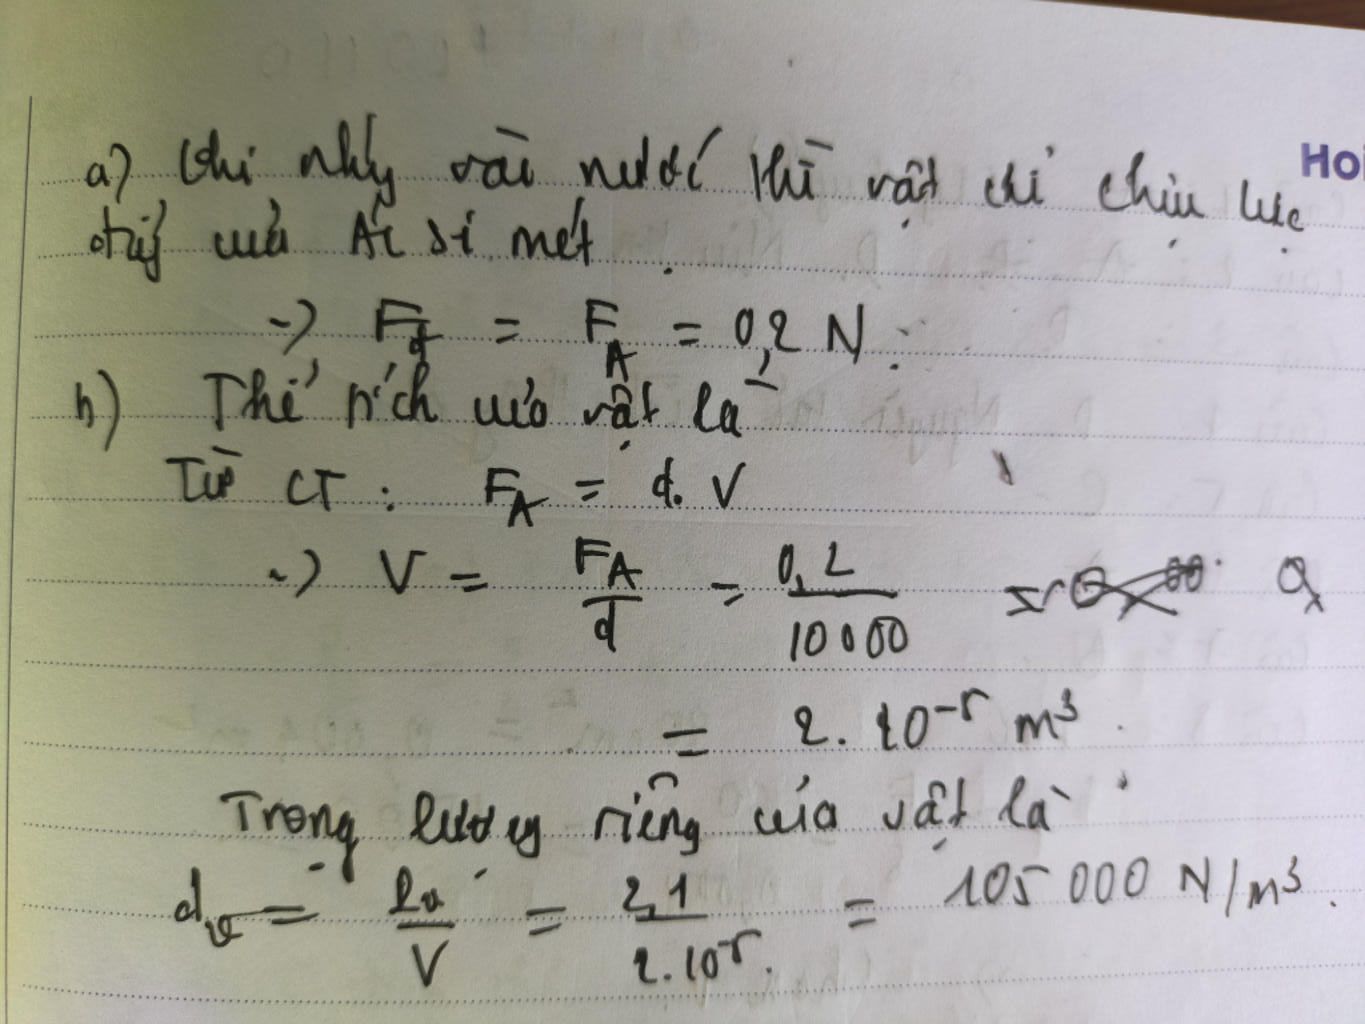 Hoi
a) Khi nhúng vào nước thì vật chỉ chịu lực
đẩy của Ác si mét.
-> Fđ = F_A = 0,2 N.
b) Thể tích của vật là
Từ CT : F_A = d. V
-> V = F_A / d = 0,2 / 10000
= 2. 10^-5 m³.
Trọng lượng riêng của vật là
d_v = / V = 2,1 / 2.10^-5. = 105 000 N/m³.